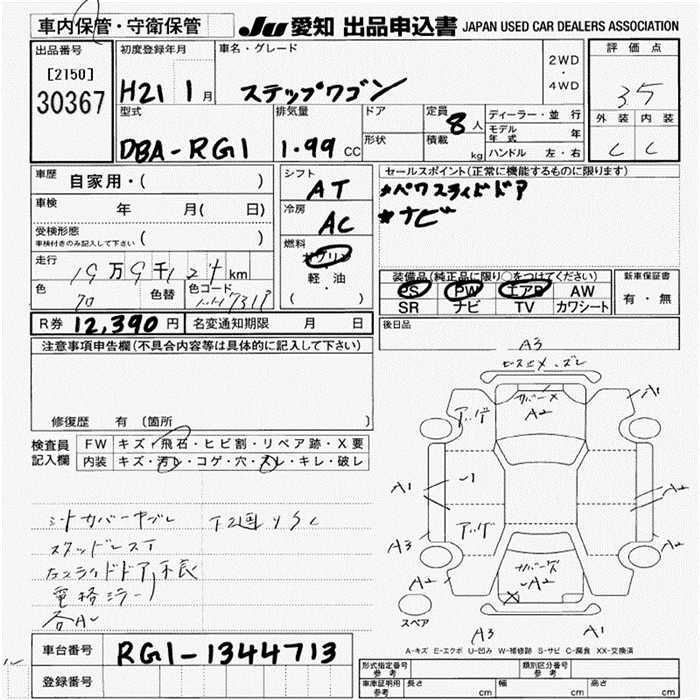 車内保管・守衛保管
JU 愛知 出品申込書 JAPAN USED CAR DEALERS ASSOCIATION
出品番号
[2150]
30367
初度登録年月
H21 1月
車名・グレード
ステップワゴン
2WD
・
4WD
評価点
3.5
外装 内装
C C
型式
DBA-RG1
排気量
1.99 CC
ドア
形状
定員
8人
積載
kg
ディーラー・並行
モデル年式 年
ハンドル 左・右
車歴
自家用・( )
車検 年 月( 日)
受検形態
車検付きのみ記入して下さい ( )
走行
19万9千1 km
色
色替
色コード
シフト
AT
冷房
AC
燃料
ガソリン
・
軽・油
( )
セールスポイント(正常に機能するものに限ります)
★パワスライドドア
★ナビ
装備品(純正品に限り○をつけてください)
PS PW エアB AW
SR ナビ TV カワシート
新車保証書
有・無
R券 12,390円
名変通知期限 月 日
後日品
注意事項申告欄(不具合内容等は具体的に記入して下さい)
修復歴 有 〔箇所
検査員
記入欄
FW キズ・飛石・ヒビ割・リペア跡・X要
内装 キズ・汚レ・コゲ・穴・スレ・キレ・破レ
シートカバー
スタッドレスT
左スライドドア不良
電格ミラー
A3
カバー
A2
A1
アゲ
A1
A1
A2
アゲ
A3
A2
カバー
A2
A2
A3
A1
スペア
A-キズ E-エクボ U-凹み W-補修跡 S-サビ C-腐食 XX-交換済
車台番号 RG1-1344713
登録番号
形式指定番号
参考
類別区分番号
参考
車庫証明用
参考
長さ cm
幅 cm
高さ cm